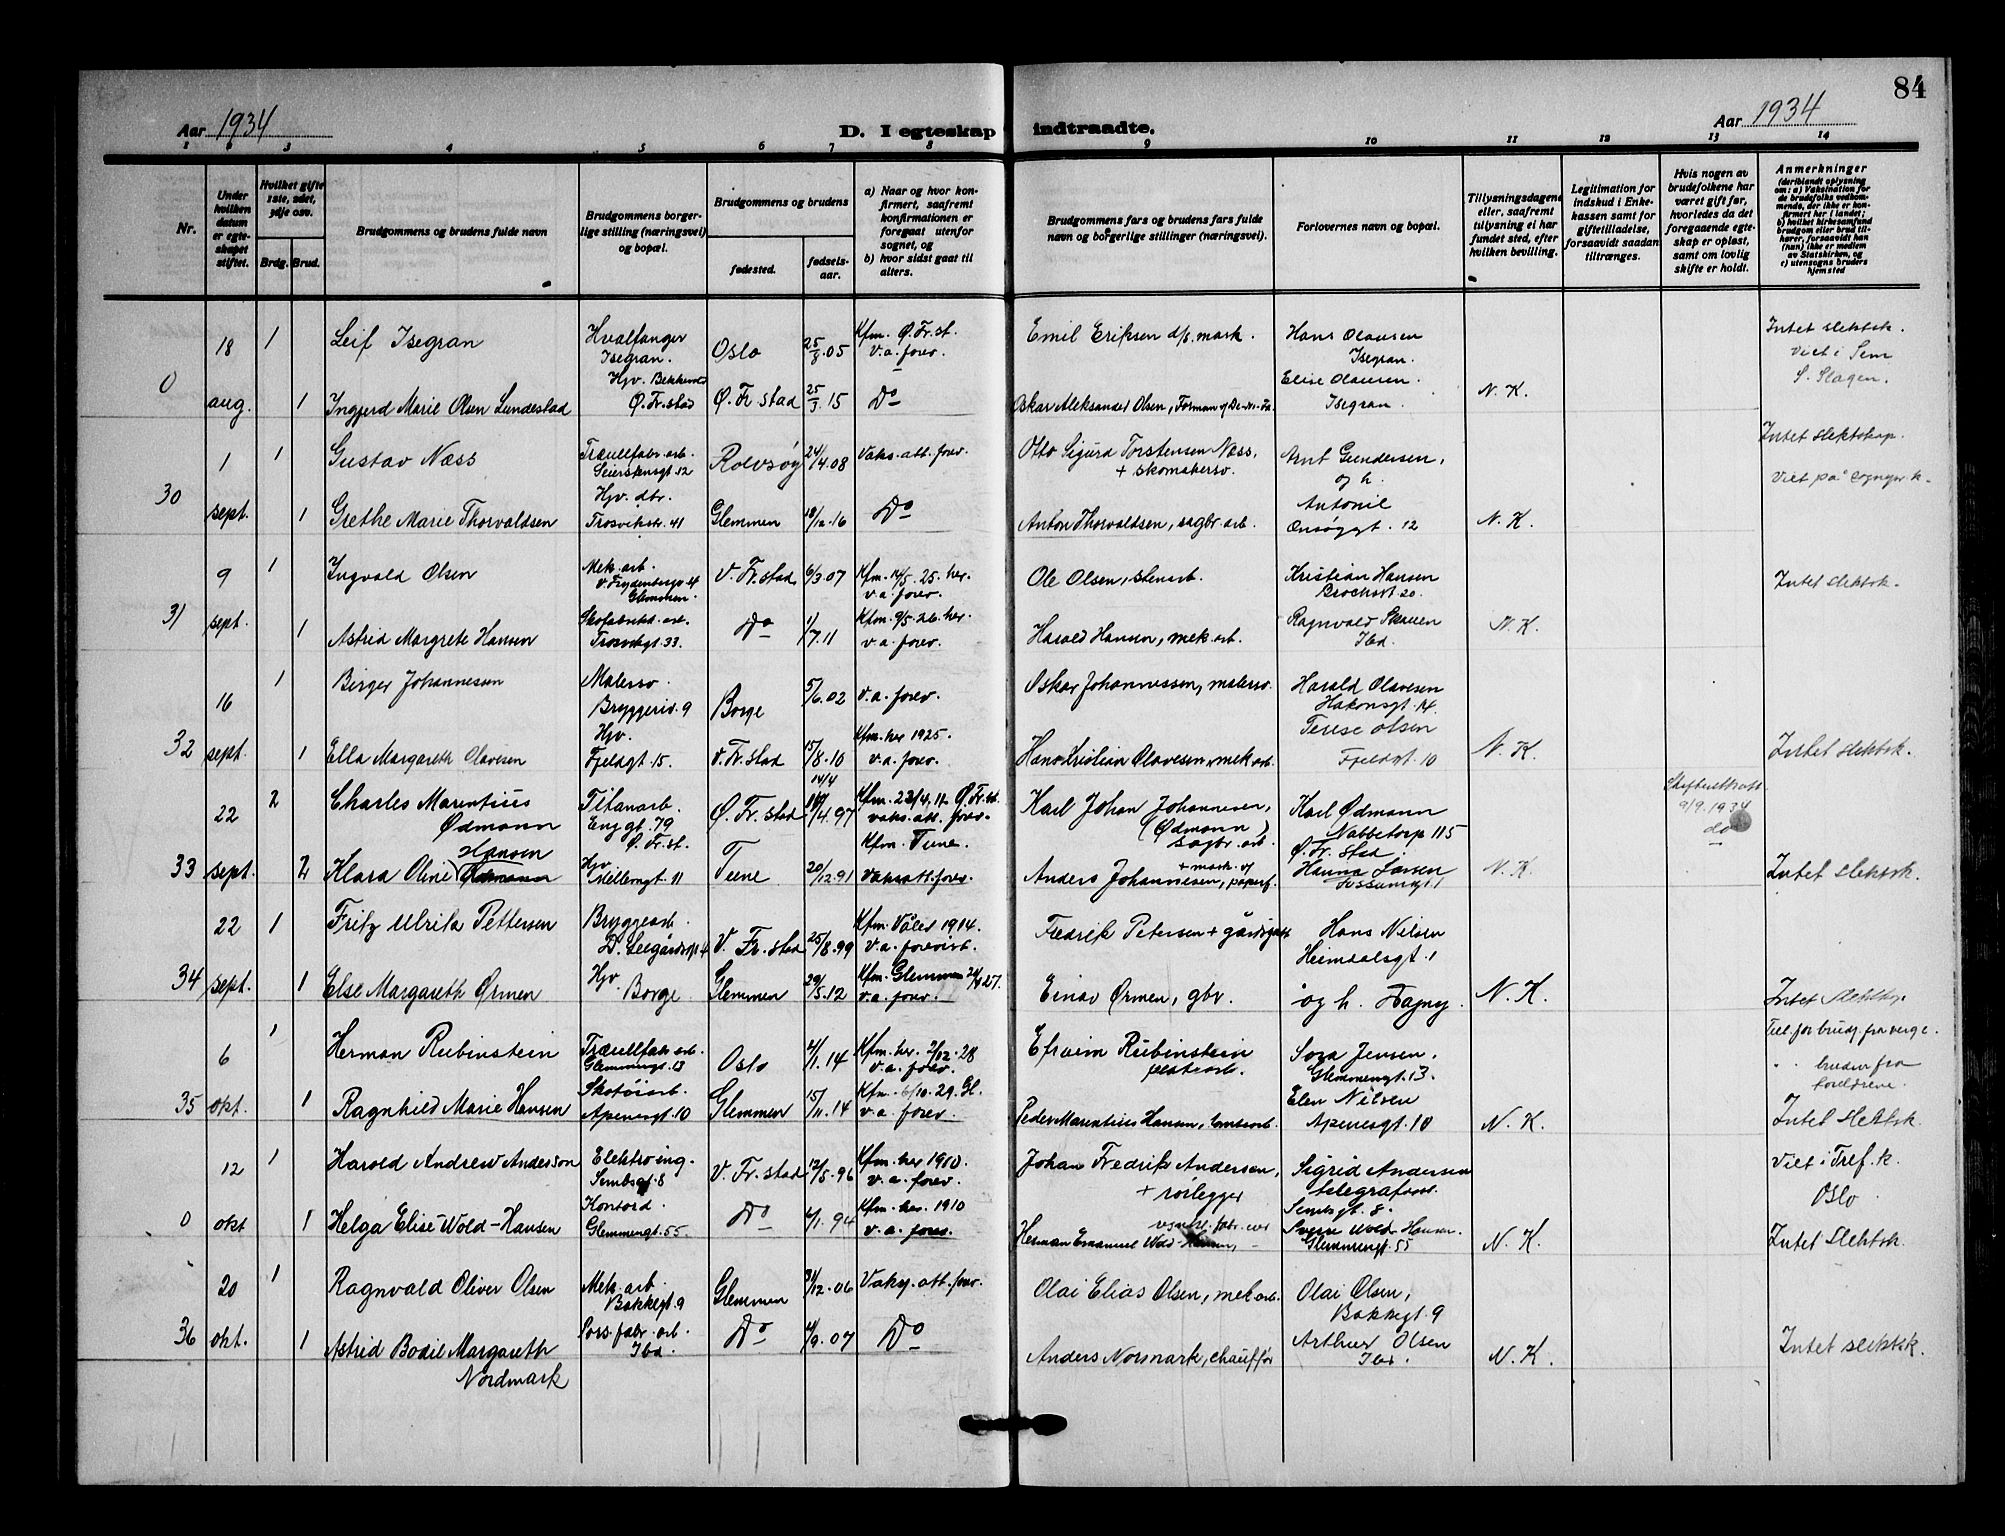 84
Aar 1934
D. I egteskap indtraadte.
Aar 1934
1 2 3 4 5 6 7 8 9 10 11 12 13 14
Nr.
Under hvilken datum er egteskapet stiftet.
Hvilket gifte 1ste, 2det, 3dje osv.
Brdg. Brud.
Brudgommens og brudens fulde navn
Brudgommens borgerlige stilling (næringsvei) og bopæl.
Brudgommens og brudens
fødested.
fødselsaar.
a) Naar og hvor konfirmert, saafremt konfirmationen er foregaat utenfor sognet, og
b) hvor sidst gaat til alters.
Brudgommens fars og brudens fars fulde navn og borgerlige stillinger (næringsvei).
Forlovernes navn og bopæl.
Tillysningsdagene eller, saafremt tillysning ei har fundet sted, efter hvilken bevilling.
Legitimation for indskud i Enkekassen samt for giftetilladelse, forsaavidt saadan tiltrænges.
Hvis nogen av brudefolkene har været gift før, hvorledes da det foregaaende egteskap er opløst, samt om lovlig skifte er holdt.
Anmerkninger
(deriblandt oplysning om: a) Vaksination for de brudefolks vedkommende, der ikke er konfirmert her i landet;
b) hvilket kirkesamfund brudgom eller brud tilhører, forsaavidt han (hun) ikke er medlem av Statskirken, og
c) utensogns bruders hjemsted
0
18 aug.
1
Leif Isegran
Hvalfanger
Isegran.
Oslo
25/8.05
Kfm. Ø.Fr.st.
v.a. forev.
Emil Eriksen d/s. mask.
Hans Olausen
Isegran.
Intet slektsk.
Viet i Sem
S. Slagen.
1
Ingjerd Marie Olsen Lundestad
Hjv.
Ø.Fr.stad
Ø.Fr.stad
25/3.15
Do
Oskar Aleksander Olsen, Forman
Elise Olausen.
Isegran.
N.K.
30
1 sept.
1
Gustav Næss
Træullfabr. arb.
Rolvsøy
24/4.08
Vaks.att.forev.
Otto Sigurd Torstensen Næss,
+ skomakersv.
Arnt Gundersen,
og h.
Intet slektskap.
Viet på
1
Grethe Marie Thorvaldsen
Hjv. dtr.
Trosvikstr. 41
Glemmen
18/12.16
Do
Anton Thorvaldsen, sagbr.arb.
Antonie
Ensøygt. 12
N.K.
31
9 sept.
1
Ingvald Olsen
Mek.arb.
Glemmen
V.Fr.stad
6/3.07
Kfm. 14/5.25. her.
v.a. forev.
Ole Olsen, stenarb.
Kristian Hansen
Brochsgt 20.
Intet slektsk.
1
Astrid Margrete Hansen
Skofabrikk.arb.
Trosvikgt. 33.
Do
1/7.11
Kfm. 9/5.26. her.
v.a. forev.
Harald Hansen, mek.arb.
Ragnvald Skauen
Ibd.
N.K.
32
16 sept.
1
Birger Johannesen
Malersv.
Bryggeriv. 9
Borge
5/6.02
v.a. forev.
Oskar Johannessen, malersv.
Harald Olavesen
Håkonsgt. 14.
1
Ella Margareth Olavesen
Hjv.
Fjeldgt 15.
V.Fr.stad
15/8.10
Kfm. her 1925.
v.a. forev.
Hans Kristian Olavesen, mek.arb.
Terese Olsen
Fjeldgt. 10
N.K.
Intet slektsk.
33
22 sept.
2
Charles Marentius
Ødmann
Titanarb.
Enggt. 79
Ø.Fr.st.
Ø.Fr.stad
14/4
/4.97
Kfm. 23/4.11. Ø.Fr.st.
vaks.att. forev.
Karl Johan Johannesen,
(Ødmann)
sagbr.arb.
Karl Ødmann
Nabbetorp 115
Ø.Fr.stad
Skifteattest
9/9.1934
do
2
Klara Oline Hansen
Ødmann
Hjv.
Mellemgt. 11
Tune
20/12.91
Kfm. Tune.
Vaksatt.forev.
Anders Johannesen,
+ mask. v/ papirf.
Hanna Larsen
Fossumgt. 1
N.K.
Intet slektsk.
34
22 sept.
1
Fritz Ulrik Pettersen
Bryggearb.
D. Leegårdsgt 4
V. Fr.stad
25/8.99
Kfm. Våler 1914.
v.a. forev.
Fredrik Petersen + gårdsgutt
Hans Nilsen
Heimdalsgt. 1
1
Else Margareth Ørmen
Hjv.
Borge
Glemmen
29/5.12
Kfm. Glemmen 27.
v.a. forev.
Einar Ørmen, gbr.
og h. Dagny.
N.K.
Intet slektsk.
35
6 okt.
1
Herman Rubinstein
Træullfabr.arb.
Glemmengt. 13
Oslo
/1.14
Kfm. her. 2/12.28
v.a. forev.
Efraim Rubinstein
Sora Jensen.
Glemmengt. 13.
Till. for brudg. fra verge.
" bruden fra
foreldrene.
1
Ragnhild Marie Hansen
Skotøiarb.
Apenesgt. 10
Glemmen
15/11.14
Kfm. 6/10.29. Gl.
v.a. forev.
Peder Marentius Hansen, tomtearb.
Elen Nilsen
Apenesgt. 10
N.K.
Intet slektsk.
0
12 okt
1
Harold Andrew Anderson
Elektroing.
Sembsgt 8
V. Fr.stad
12/5.96
Kfm. her 1910.
v.a. forev.
Johan Fredrik Andersen,
+ rørlegger
Sigrid Andersen
telegrafass.
Sembsgt. 8.
Viet i Tref. k.
Oslo
1
Helga Elise Wold-Hansen
Kontord.
Glemmengt. 55.
Do
4/1.94
Kfm. her. 1910
v.a. forev.
Herman Emanuel Wold-Hansen,
Sverre Wold-Hansen.
Glemmengt. 55
N.K.
Intet slektsk.
36
20 okt.
1
Ragnvald Oliver Olsen
Mek.arb.
Bakkegt. 9
Glemmen
31/12.06
Vaks.att.forev.
Olai Elias Olsen, mek.arb.
Olai Olsen,
Bakkegt. 9
1
Astrid Bodil Margareth
Nordmark
Ibd.
Do
4/9.07
Do
Anders Normark, chauffør
Arthur Olsen
Ibd.
N.K.
Intet slektsk.